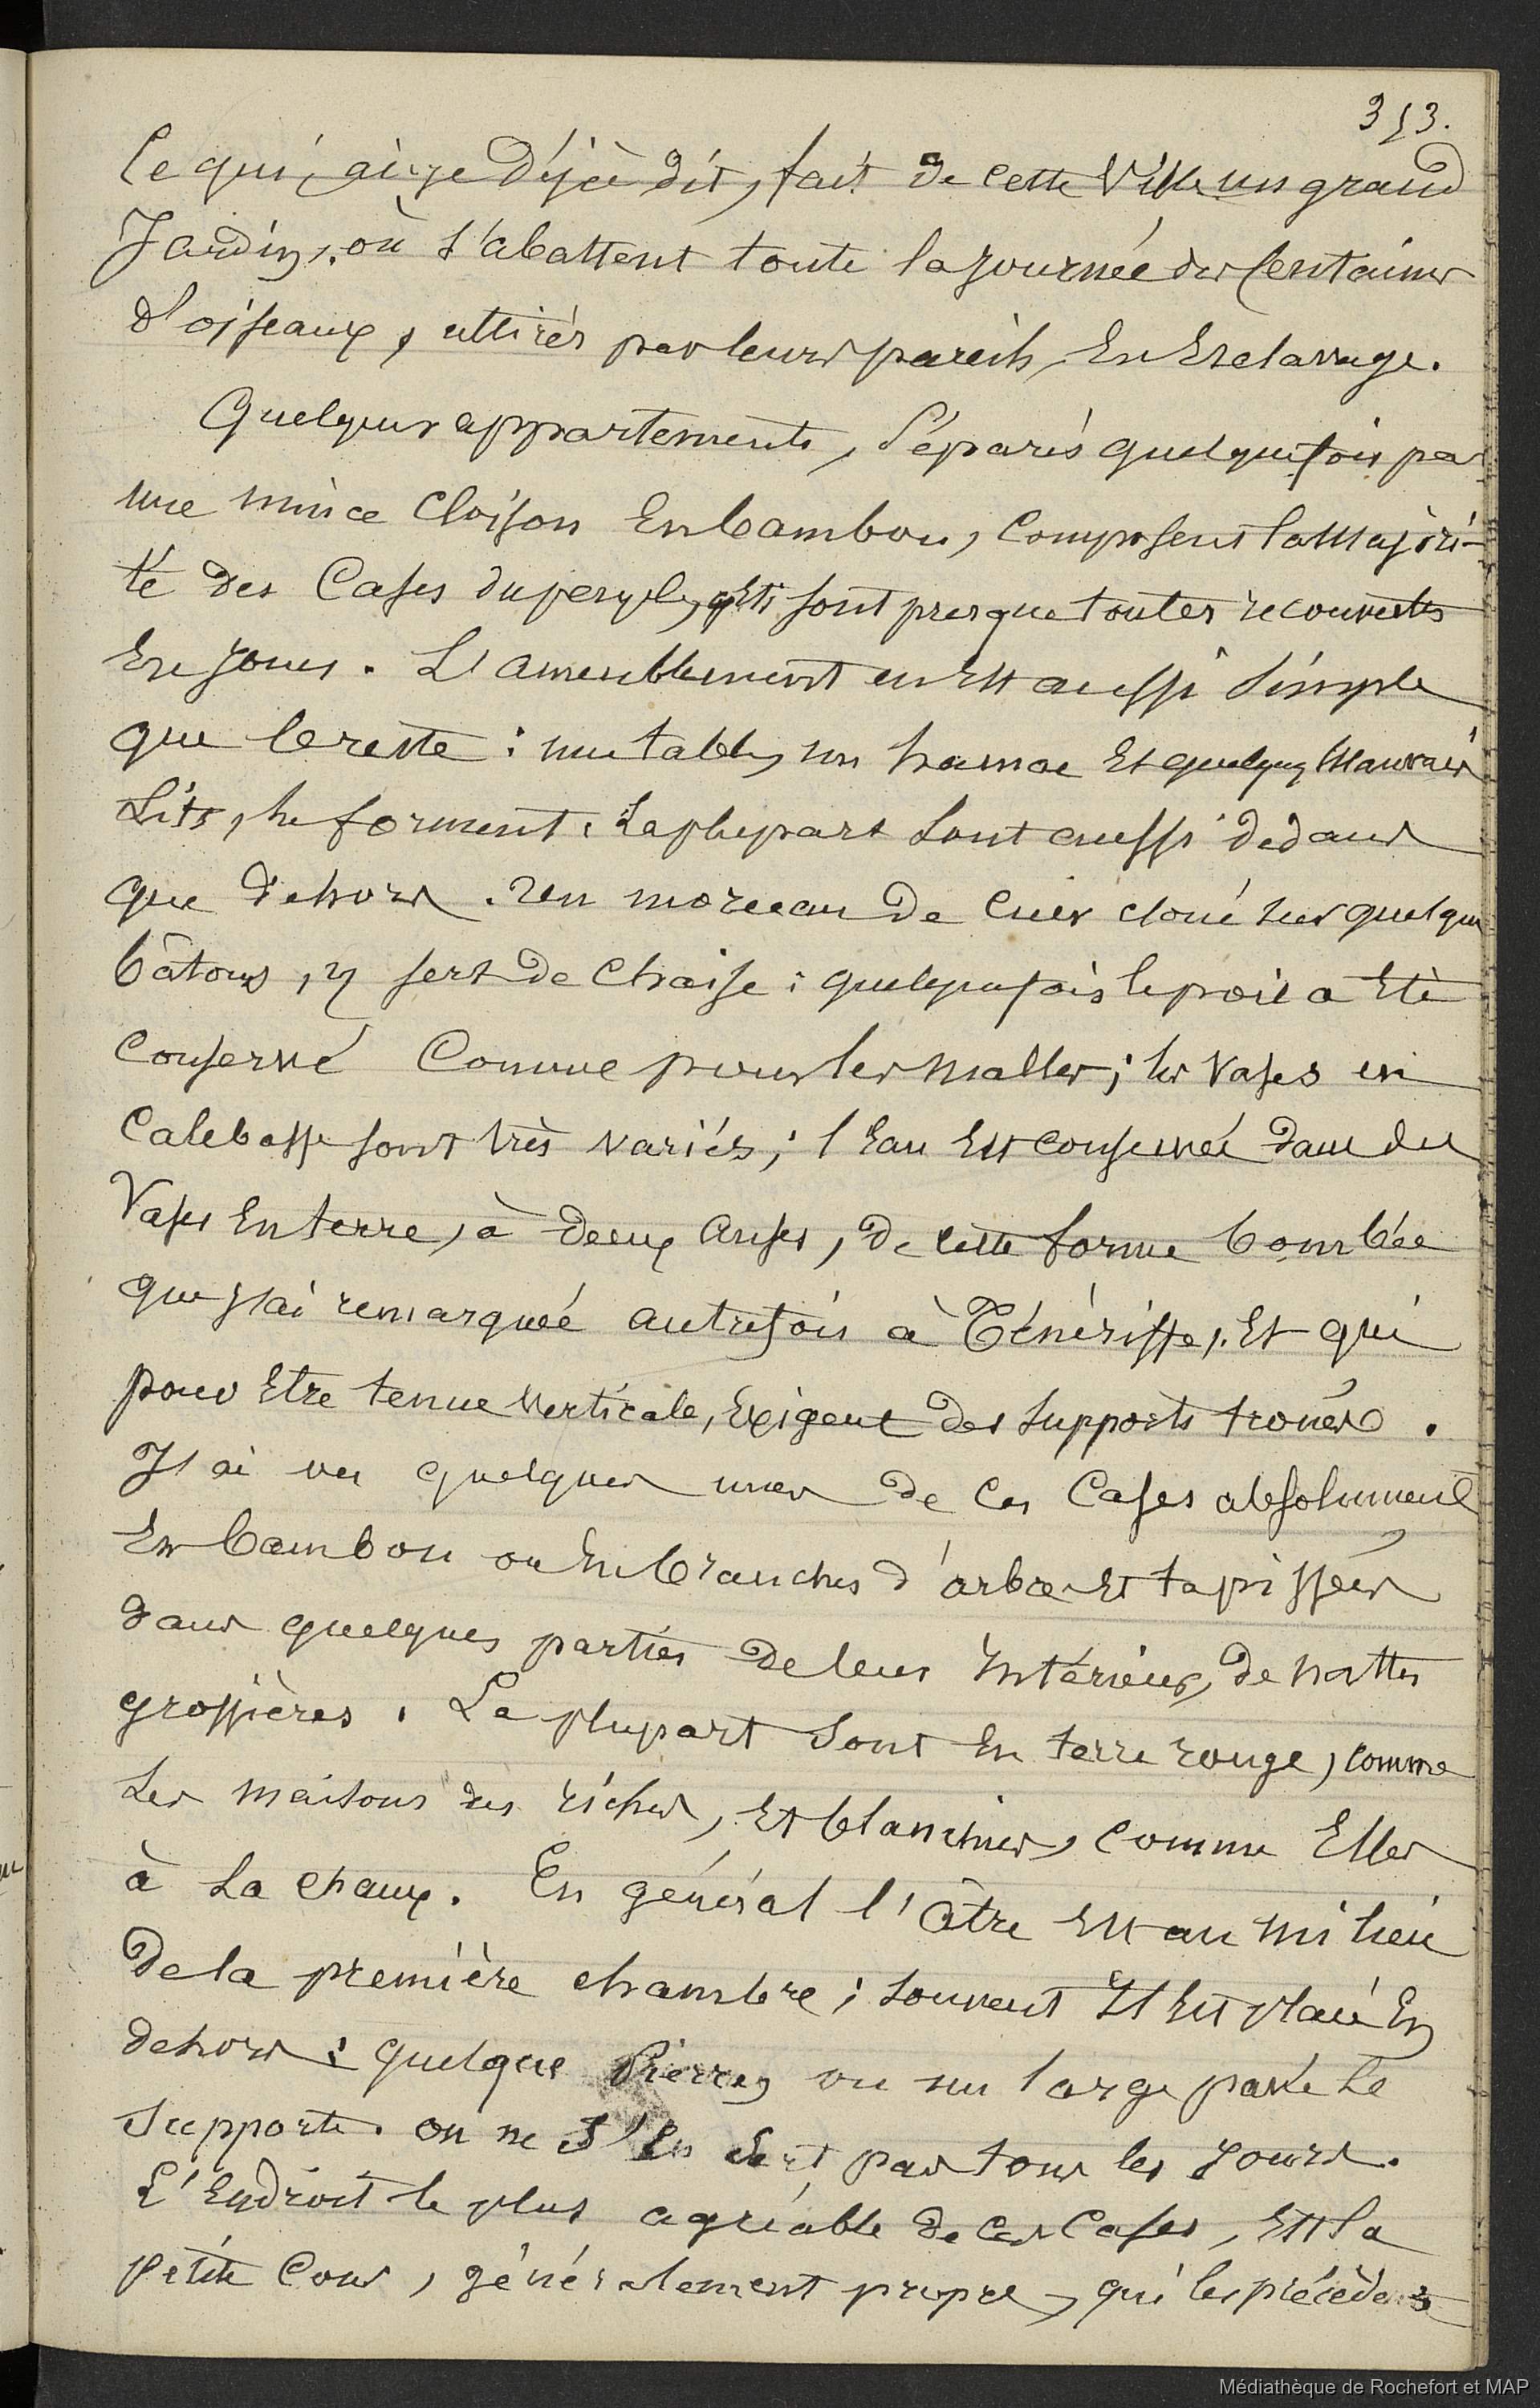 353.
Ce qui, ai-je déjà dit, fait de cette Ville un grand
Jardin, où s'abattent toute la journée des Centaines
d'oiseaux, attirés par leurs pareils, En Esclavage.
Quelques appartements, séparés quelquefois par
une mince Cloison En bambou, Composent la Majori-
té des Cases du peuple, qui sont presque toutes recouvertes
En joncs. L'ameublement en Est aussi simple
que le reste : une table, un hamac Et quelques Mauvais
Lits, le forment. La plupart sont aussi dedans
que dehors. Un morceau de Cuir cloué sur quelques
bâtons, y sert de Chaise : quelquefois le poil a Eté
Conservé Comme pour les malles ; les Vases en
Calebasse sont très variés ; l'Eau Est conservée dans des
Vases En terre, à deux Anses, de cette forme bombée
que j'ai remarquée autrefois à Ténériffe, Et qui
pour Etre tenue verticale, Exigent des supports troués.
J'ai vu quelques unes de ces Cases absolument
En bambou ou En branches d'arbre Et tapissées
dans quelques parties de leur Intérieur, de nattes
grossières. La plupart sont En terre rouge, comme
Les maisons des riches, Et blanchies, comme Elles
à La chaux. En général l'âtre Est au milieu
De la première chambre ; souvent Il Est placé En
dehors : quelques Pierres ou un large pavé Le
supporte. On ne s'En sert pas tous les jours.
L'Endroit le plus agréable de ces Cases, Est la
petite Cour, généralement propre, qui les précède
Médiathèque de Rochefort et MAP